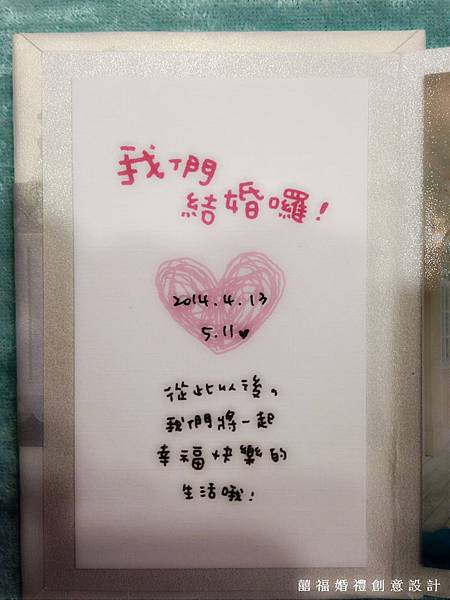 我們
結婚囉!
2014.4.13
5.11♥
從此以後,
我們將一起
幸福快樂的
生活哦!
囍福婚禮創意設計